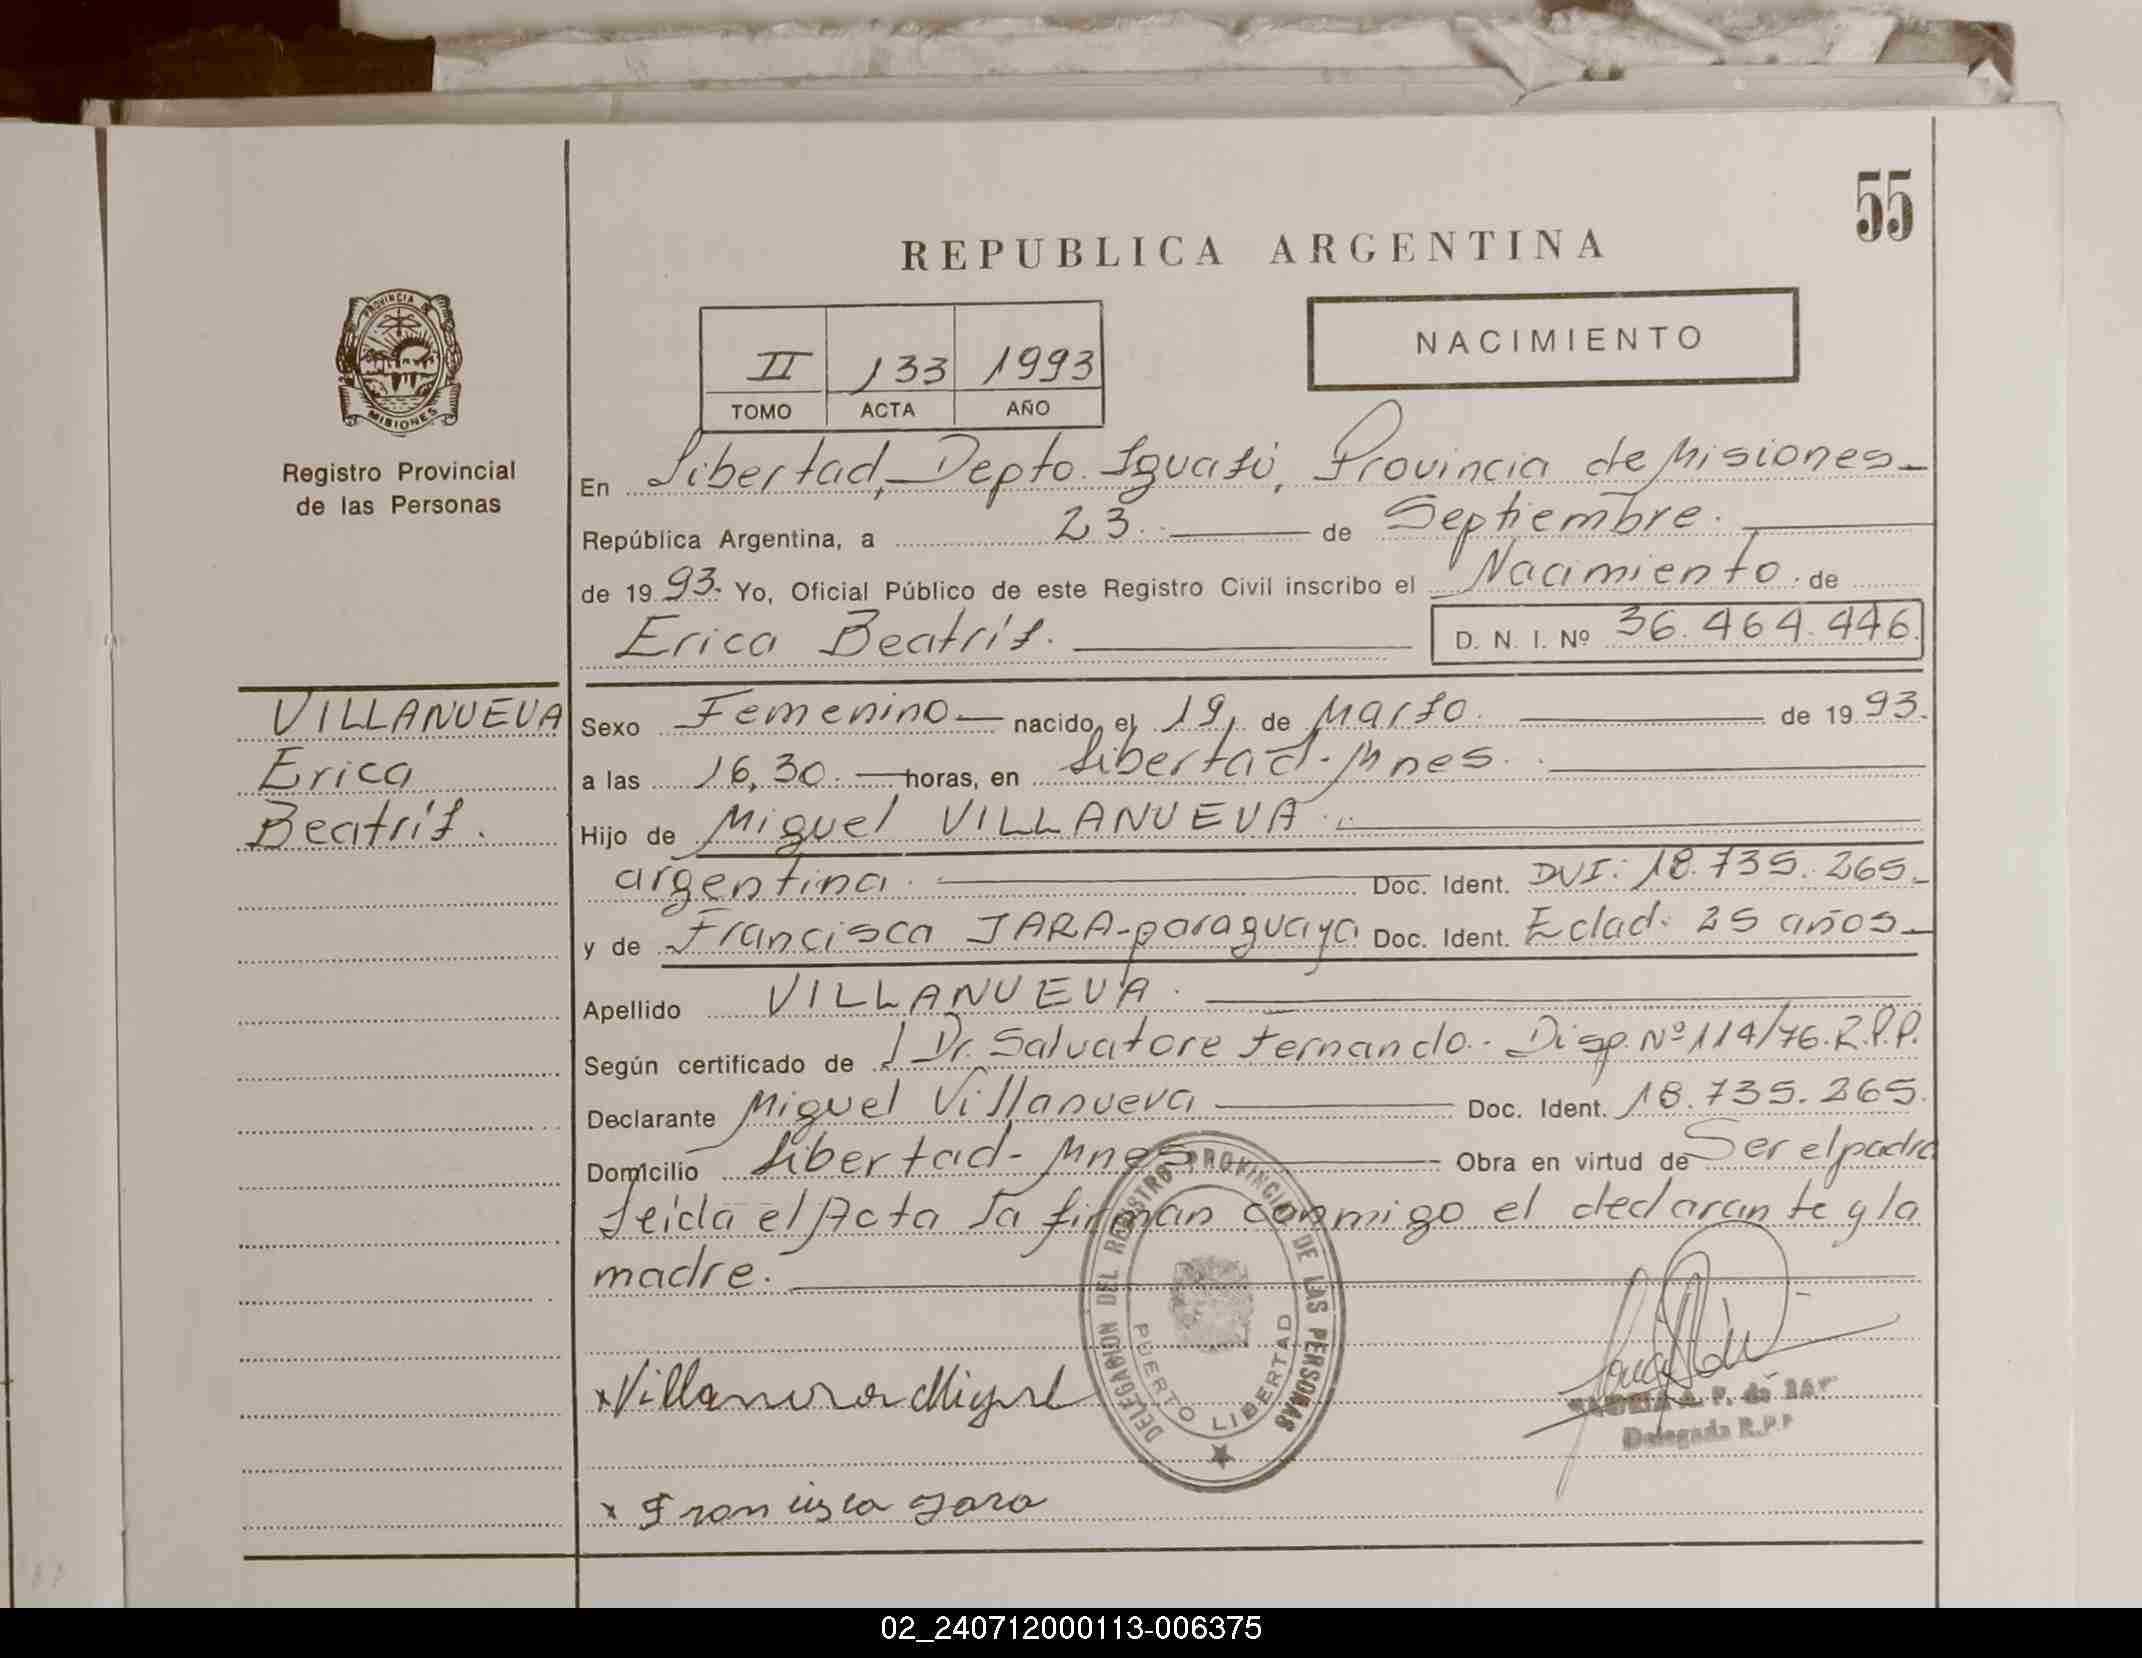 55
REPUBLICA ARGENTINA
PROVINCIA DE
MISIONES
Registro Provincial
de las Personas
II 133 1993
TOMO ACTA AÑO
NACIMIENTO
En Libertad, Depto. Iguazú, Provincia de Misiones
República Argentina, a 23 de Septiembre.
de 1993. Yo, Oficial Público de este Registro Civil inscribo el Nacimiento. de
Erica Beatríz. D. N. I. Nº 36.464.446.
VILLANUEVA
Erica
Beatríz.
Sexo Femenino nacido, el 19, de Marzo. de 1993.
a las 16,30. horas, en Libertad - Mnes.
Hijo de Miguel VILLANUEVA.
argentina. Doc. Ident. DNI: 18.735.265.
y de Francisca JARA - paraguaya Doc. Ident. Edad: 25 años
Apellido VILLANUEVA.
Según certificado de Dr. Salvatore Fernando. - Disp. Nº 114/76. R.P.P.
Declarante Miguel Villanueva Doc. Ident. 18.735.265.
Domicilio Libertad - Mnes Obra en virtud de Ser el padre
Leída el Acta la firman conmigo el declarante y la
madre.
DELEGACION DEL REGISTRO PROVINCIAL DE LAS PERSONAS
PUERTO LIBERTAD
x Villanueva Miguel
Delegada R.P.P
x Francisca Jara
02_240712000113-006375